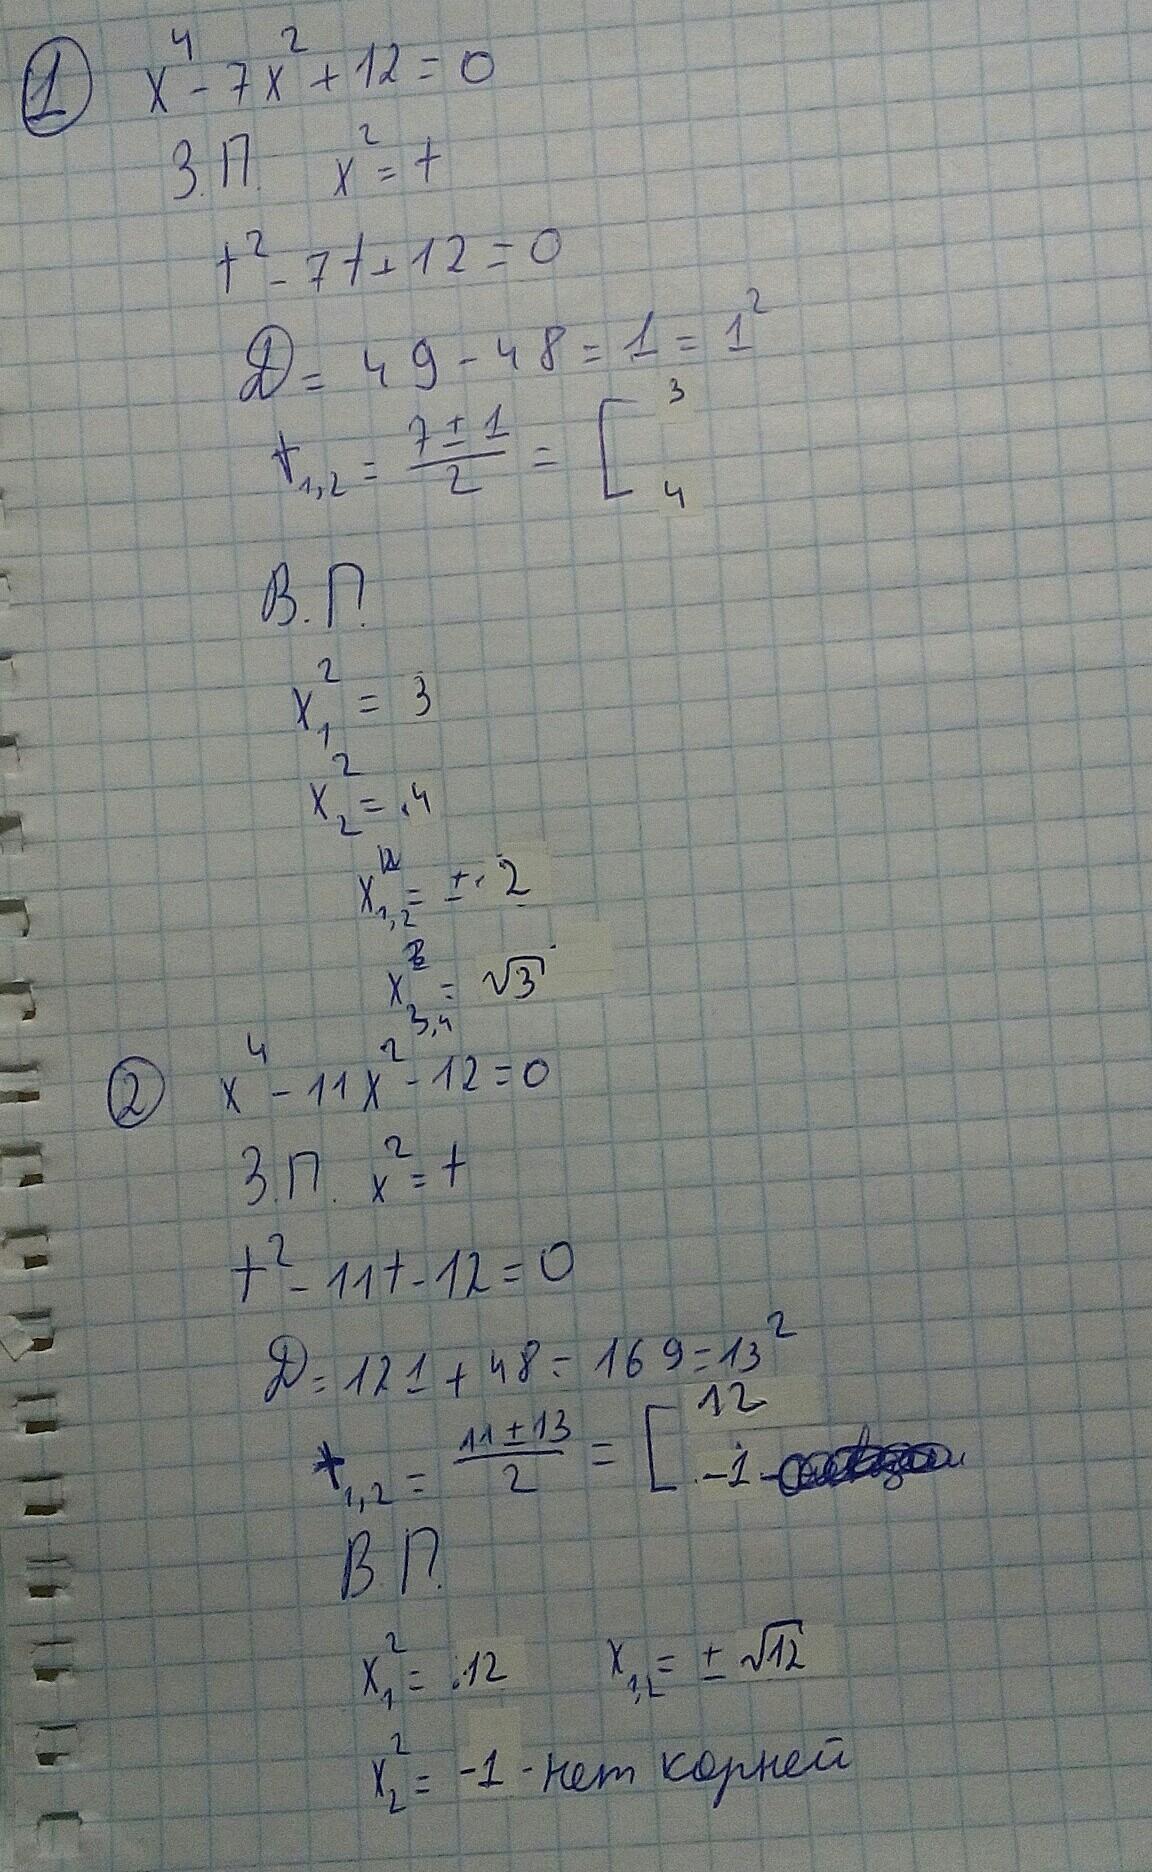 1 x⁴ - 7x² + 12 = 0
З.П. x² = t
t² - 7t + 12 = 0
Д = 49 - 48 = 1 = 1²
t₁,₂ = (7 ± 1)/2 = [ 3
4
В.П.
x₁² = 3
x₂² = 4
x₁,₂ = ± 2
x₃,₄ = √3
2 x⁴ - 11x² - 12 = 0
З.П. x² = t
t² - 11t - 12 = 0
Д = 121 + 48 = 169 = 13²
t₁,₂ = (11 ± 13)/2 = [ 12
-1
В.П.
x₁² = 12 x₁,₂ = ± √12
x₂² = -1 - нет корней